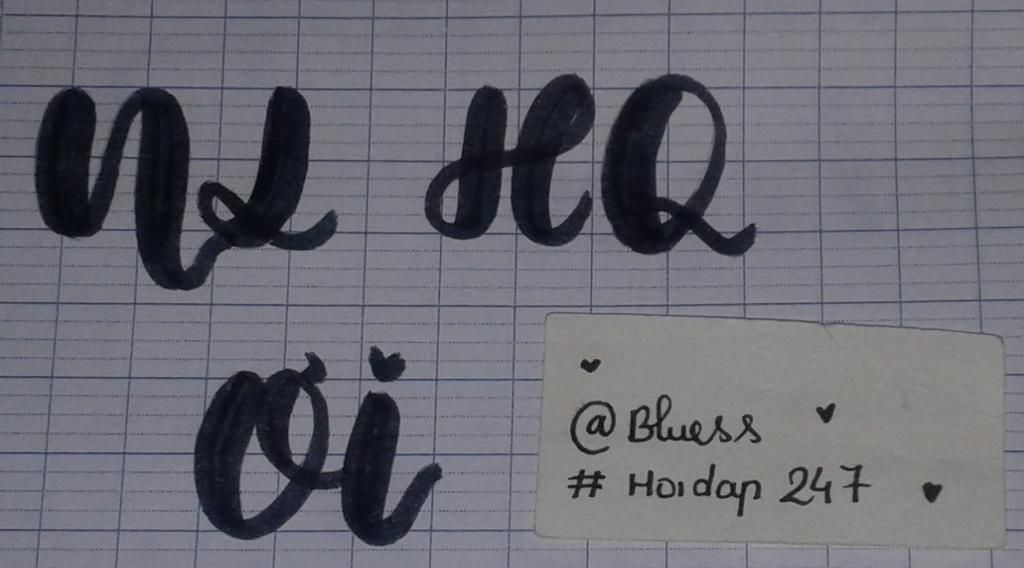 NL HQ
Ơi
@Bluess
# Hoidap 247